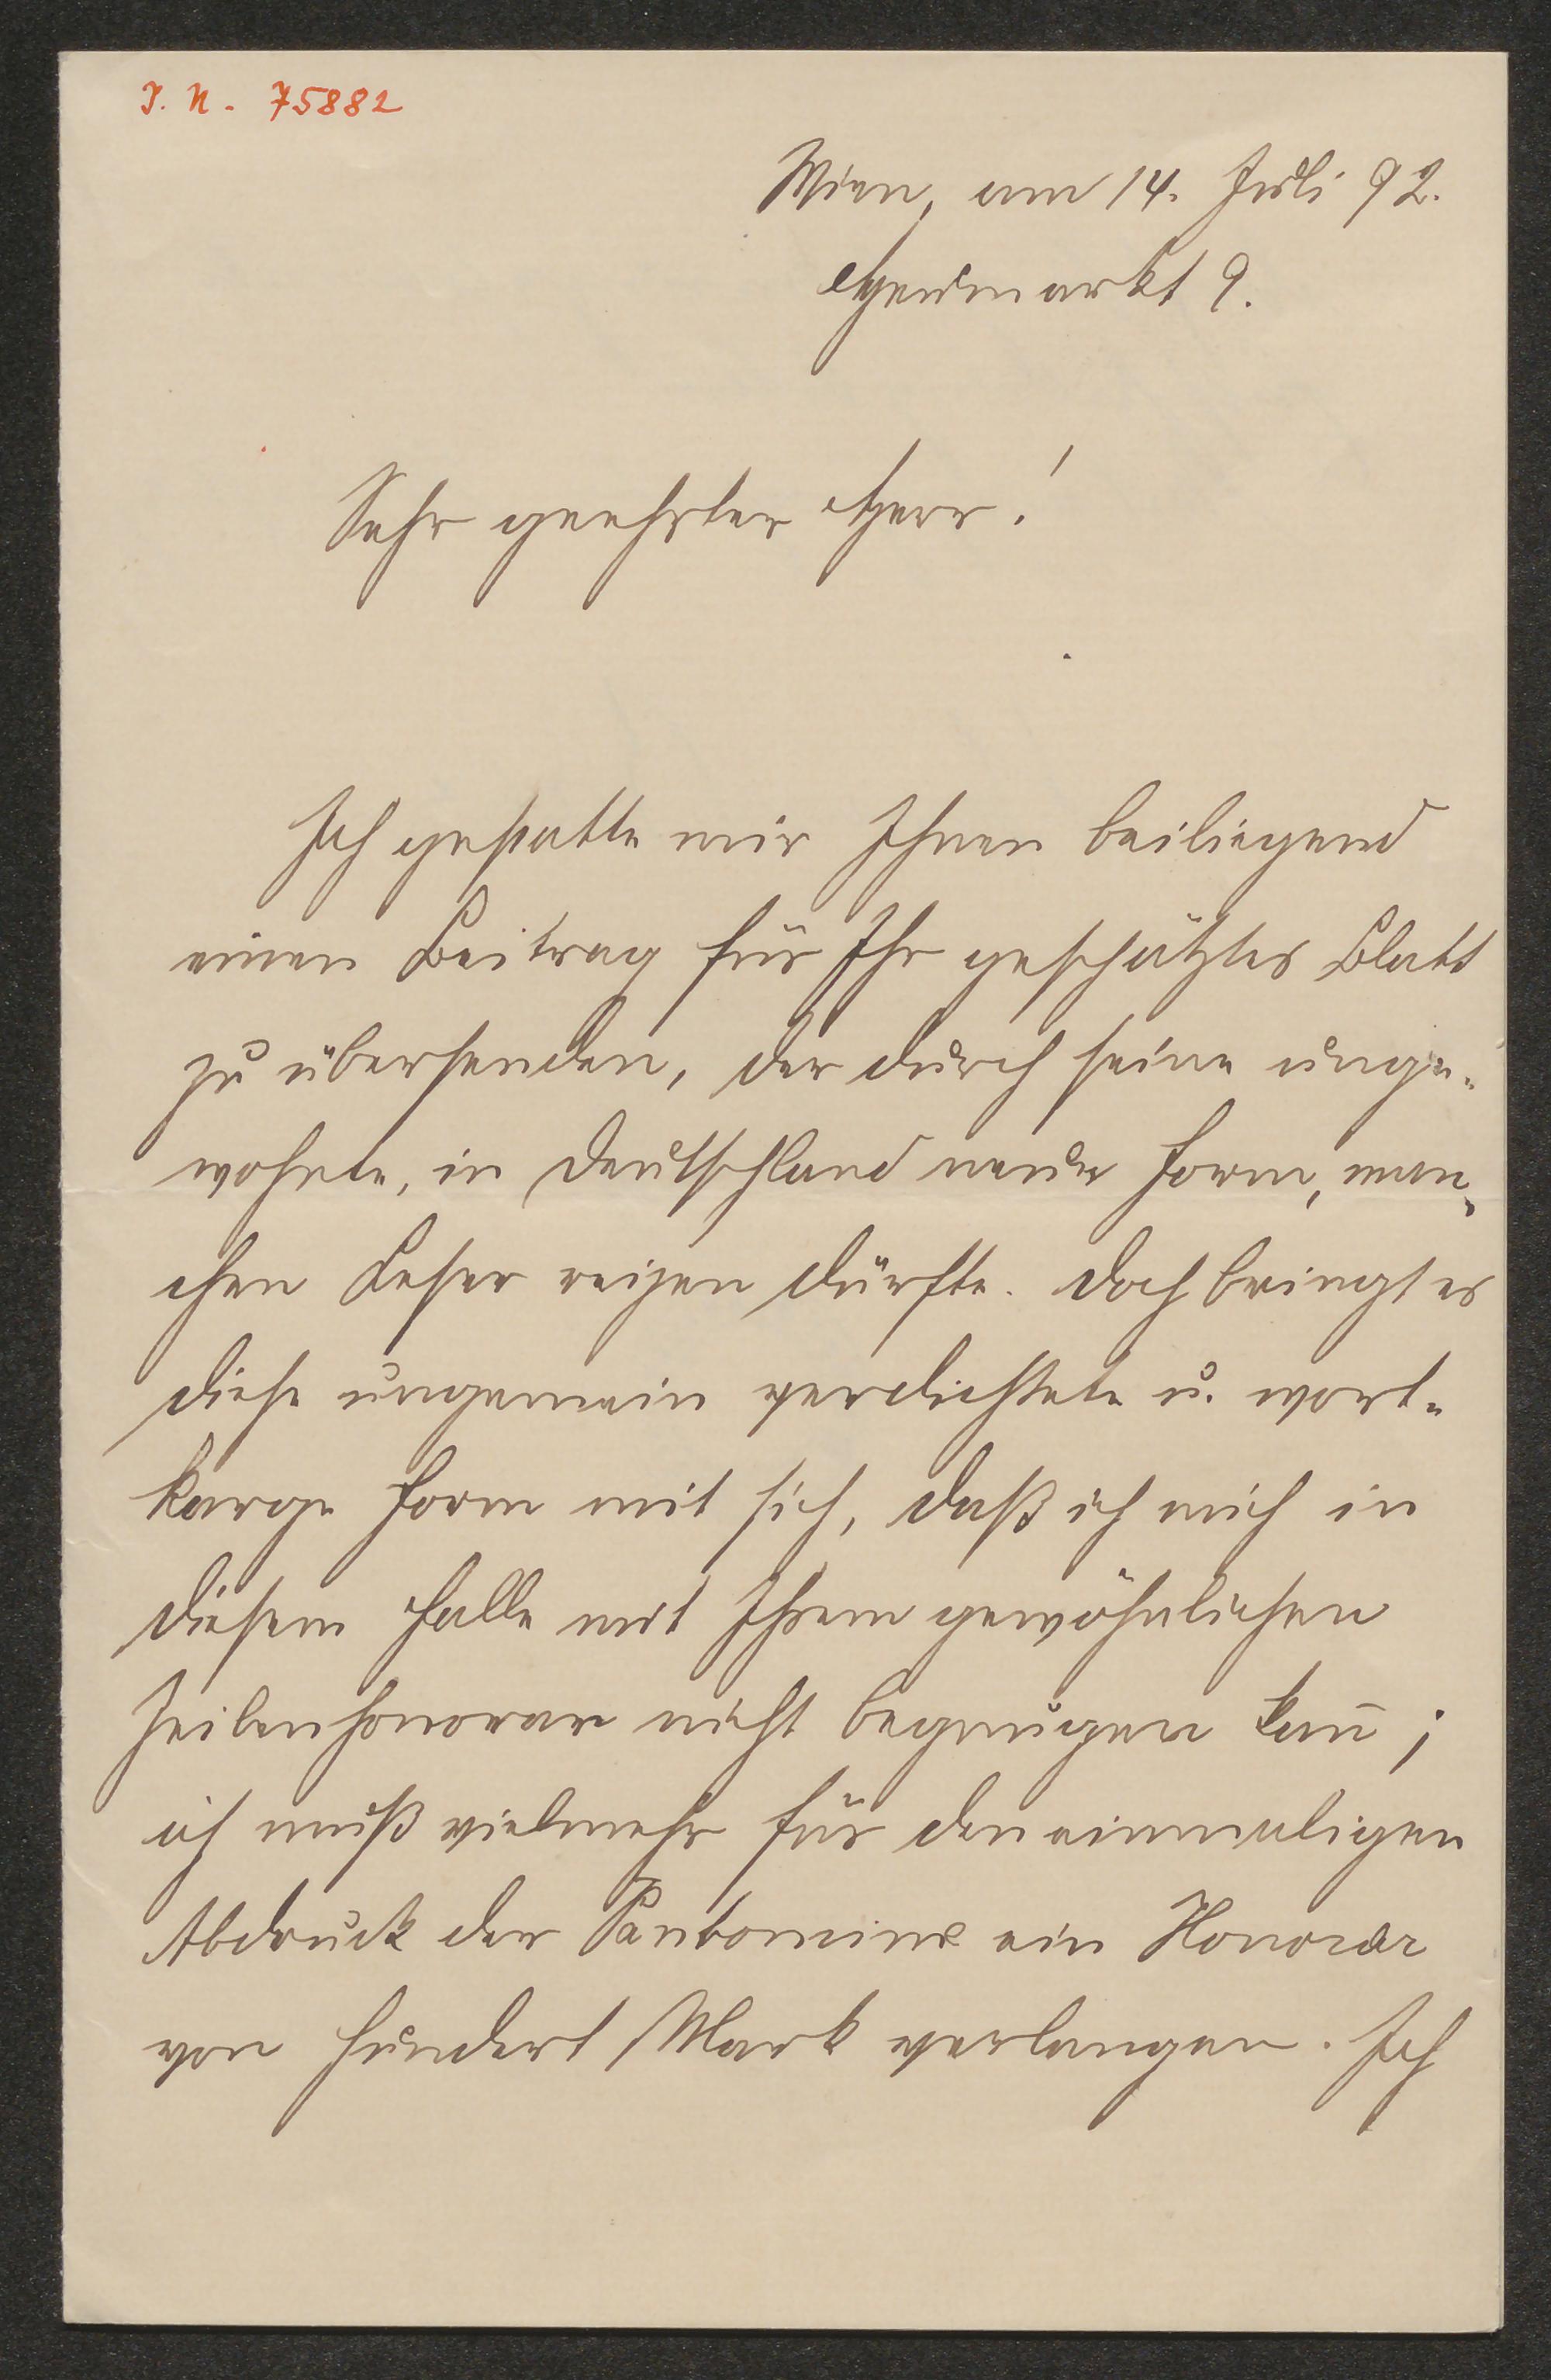 I. N. 75882
Wien, am 14. Juli 92.
Heumarkt 9.
Sehr geehrter Herr!
Ich gestatte mir Ihnen beiliegend
einen Beitrag für Ihr geschätztes Blatt
zu übersenden, der durch seine unge-
wohnte, in Deutschland neue Form, man-
chen Leser reizen dürfte. Doch bringt es
diese ungemein verdichtete u. wort-
karge Form mit sich, daß ich mich in
diesem Falle mit Ihrem gewöhnlichen
Zeilenhonorar nicht begnügen kan̄;
ich muß vielmehr für den einmaligen
Abdruck der Pantomime ein Honorar
von hundert Mark verlangen. Ich